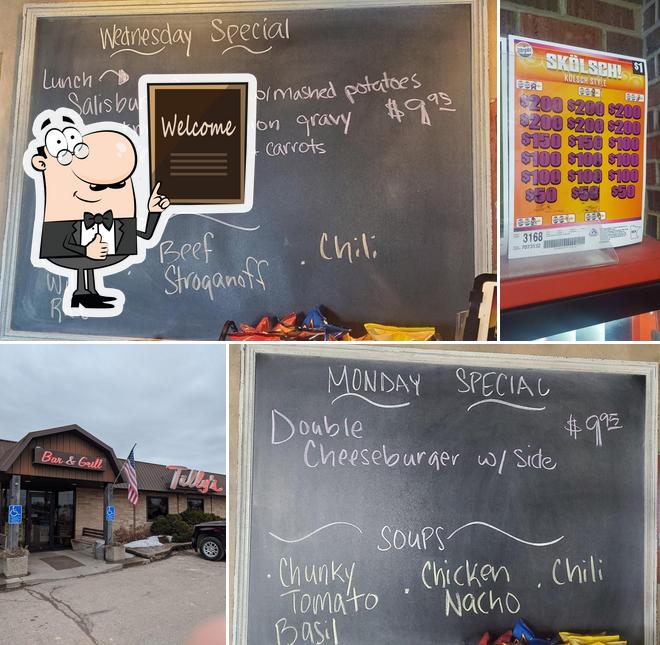 Wednesday Special
Lunch
w/mashed potatoes
$9.95
on gravy
carrots
Welcome
Beef
Stroganoff
. Chili
SKÖLSCH!
KÖLSCH STYLE
$1
$200 $200 $200
$200 $200 $200
$150 $150 $100
$100 $100 $100
$100 $100 $100
$50 $50 $50
3168
Bar & Grill
Tilly's
MONDAY SPECIAL
Double $9.95
Cheeseburger w/ Side
SOUPS
· Chunky
Tomato
Basil
· Chicken
Nacho
. Chili